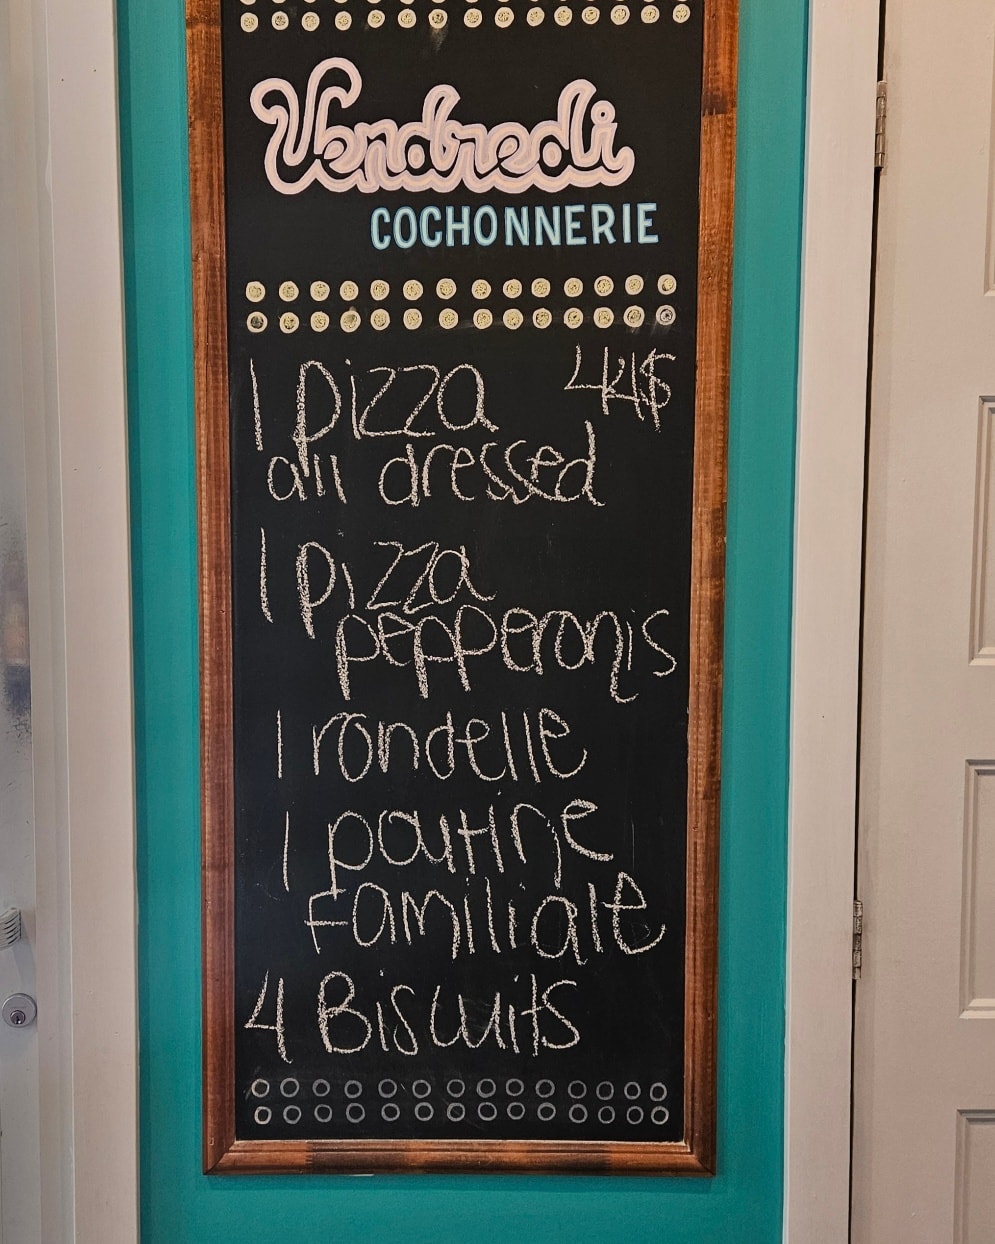 Vendredi
COCHONNERIE
1 pizza 44$
all dressed
1 pizza
pepperonis
1 rondelle
1 poutine
Familiale
4 Biscuits